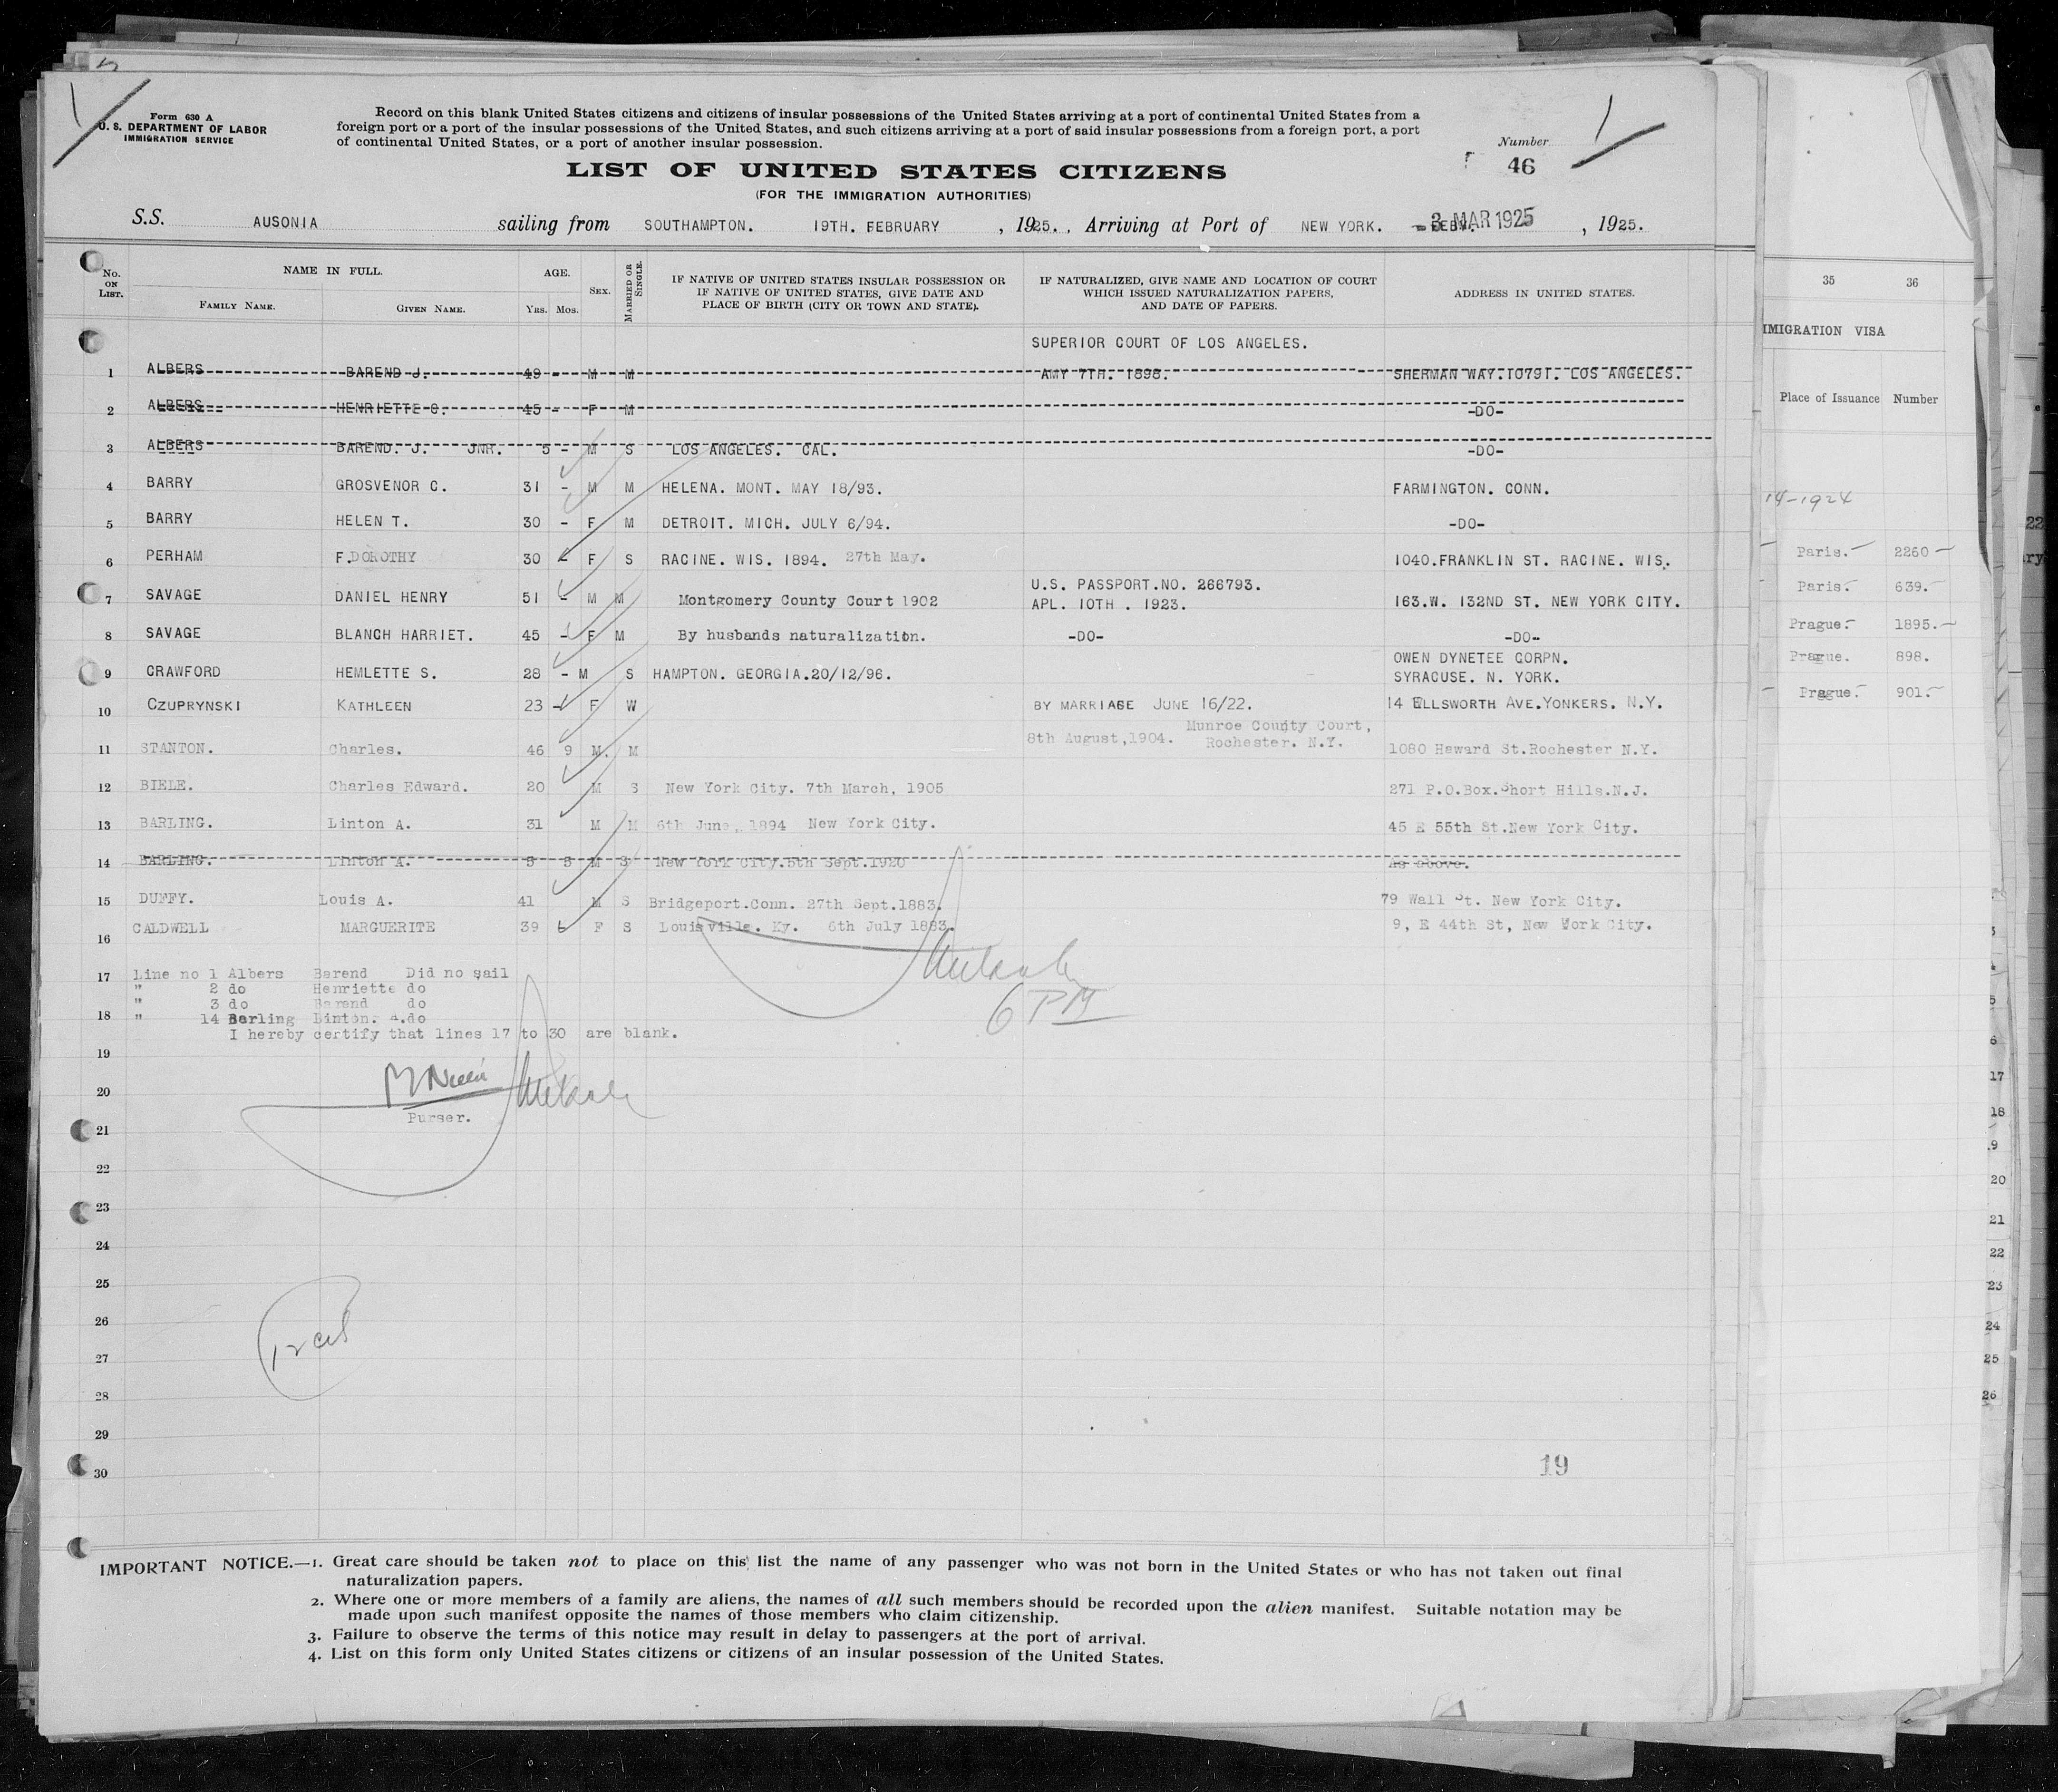 Form 630 A
U. S. DEPARTMENT OF LABOR
IMMIGRATION SERVICE
Record on this blank United States citizens and citizens of insular possessions of the United States arriving at a port of continental United States from a
foreign port or a port of the insular possessions of the United States, and such citizens arriving at a port of said insular possessions from a foreign port, a port
of continental United States, or a port of another insular possession.
Number
46
LIST OF UNITED STATES CITIZENS
(FOR THE IMMIGRATION AUTHORITIES)
S.S. AUSONIA sailing from SOUTHAMPTON. 19TH. FEBRUARY , 1925. , Arriving at Port of NEW YORK. 3 MAR 1925 , 1925.
No. ON LIST. NAME IN FULL. AGE. SEX. MARRIED OR SINGLE. IF NATIVE OF UNITED STATES INSULAR POSSESSION OR IF NATIVE OF UNITED STATES, GIVE DATE AND PLACE OF BIRTH (CITY OR TOWN AND STATE). IF NATURALIZED, GIVE NAME AND LOCATION OF COURT WHICH ISSUED NATURALIZATION PAPERS, AND DATE OF PAPERS. ADDRESS IN UNITED STATES.
FAMILY NAME. GIVEN NAME. YRS. MOS.
SUPERIOR COURT OF LOS ANGELES.
1 ALBERS BAREND J. 49 - M M AMY 7TH. 1898. SHERMAN WAY.10791. LOS ANGELES.
2 ALBERS HENRIETTE C. 45 - F M -DO-
3 ALBERS BAREND. J. JNR. 5 - M S LOS ANGELES. CAL. -DO-
4 BARRY GROSVENOR C. 31 - M M HELENA. MONT. MAY 18/93. FARMINGTON. CONN.
5 BARRY HELEN T. 30 - F M DETROIT. MICH. JULY 6/94. -DO-
6 PERHAM F.DOROTHY 30 - F S RACINE. WIS. 1894. 27th May. 1040.FRANKLIN ST. RACINE. WIS.
U.S. PASSPORT.NO. 266793.
7 SAVAGE DANIEL HENRY 51 - M M Montgomery County Court 1902 APL. 10TH . 1923. 163.W. 132ND ST. NEW YORK CITY.
8 SAVAGE BLANCH HARRIET. 45 - F M By husbands naturalization. -DO- -DO-
OWEN DYNETEE CORPN.
9 CRAWFORD HEMLETTE S. 28 - M S HAMPTON. GEORGIA.20/12/96. SYRACUSE. N. YORK.
10 CZUPRYNSKI KATHLEEN 23 - F W BY MARRIAGE JUNE 16/22. 14 ELLSWORTH AVE.YONKERS. N.Y.
Munroe County Court,
8th August,1904. Rochester. N.Y.
11 STANTON. Charles. 46 9 M. M 1080 Haward St.Rochester N.Y.
12 BIELE. Charles Edward. 20 M S New York City. 7th March, 1905 271 P.O.Box.Short Hills.N.J.
13 BARLING. Linton A. 31 M M 6th June, 1894 New York City. 45 E 55th St.New York City.
14 BARLING. Linton A. 5 5 M S New York City.5th Sept.1920 As above.
15 DUFFY. Louis A. 41 M S Bridgeport.Conn. 27th Sept.1883. 79 Wall St. New York City.
16 CALDWELL MARGUERITE 39 6 F S Louisville. Ky. 6th July 1883. 9, E 44th St, New York City.
17 Line no 1 Albers Barend Did no sail
" 2 do Henriette do
" 3 do Barend do
18 " 14 Barling Linton. A.do
I hereby certify that lines 17 to 30 are blank.
6 PM
19
20
Purser.
21
22
23
24
25
26
27
28
29
30
19
IMPORTANT NOTICE.—1. Great care should be taken not to place on this list the name of any passenger who was not born in the United States or who has not taken out final
naturalization papers.
2. Where one or more members of a family are aliens, the names of all such members should be recorded upon the alien manifest. Suitable notation may be
made upon such manifest opposite the names of those members who claim citizenship.
3. Failure to observe the terms of this notice may result in delay to passengers at the port of arrival.
4. List on this form only United States citizens or citizens of an insular possession of the United States.
35 36
IMIGRATION VISA
Place of Issuance Number
14-1924
Paris. 2260
Paris. 639.
Prague. 1895.
Prague. 898.
Prague. 901.
22
17
18
19
20
21
22
23
24
25
26